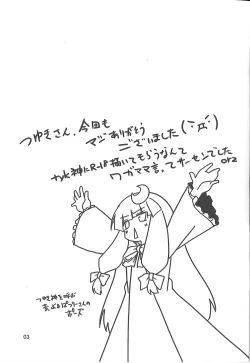 つゆきさん、今回も
マジありがとう
ございました(;´Д`)
tyk神にR-18描いてもらうなんて
ワガママ言ってサーセンでした
orz
つゆき神を呼ぶ
ぱちゅりーさんの
ポーズ
03